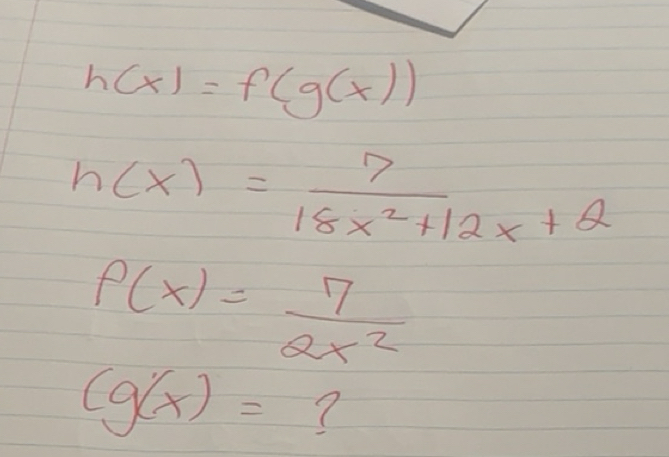 h(x) = f(g(x))
h(x) = 7 / 18x² + 12x + 2
f(x) = 7 / 2x²
(g(x) = ?